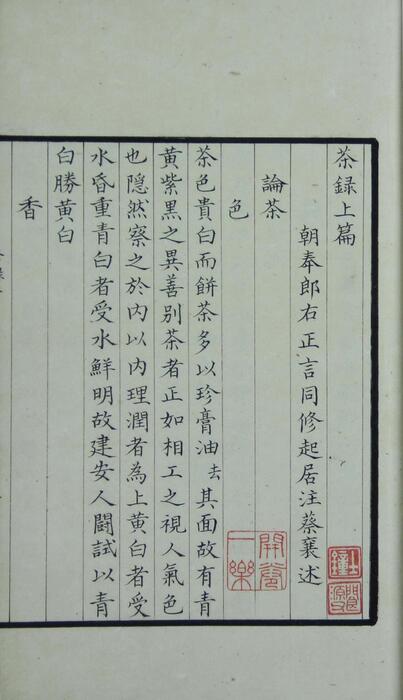 茶録上篇
朝奉郎右正言同修起居注蔡襄述
論茶
色
茶色貴白而餅茶多以珍膏油去其面故有青
黄紫黑之異善别茶者正如相工之視人氣色
也隠然察之於内以内理潤者為上黄白者受
水昏重青白者受水鮮明故建安人鬭試以青
白勝黄白
香